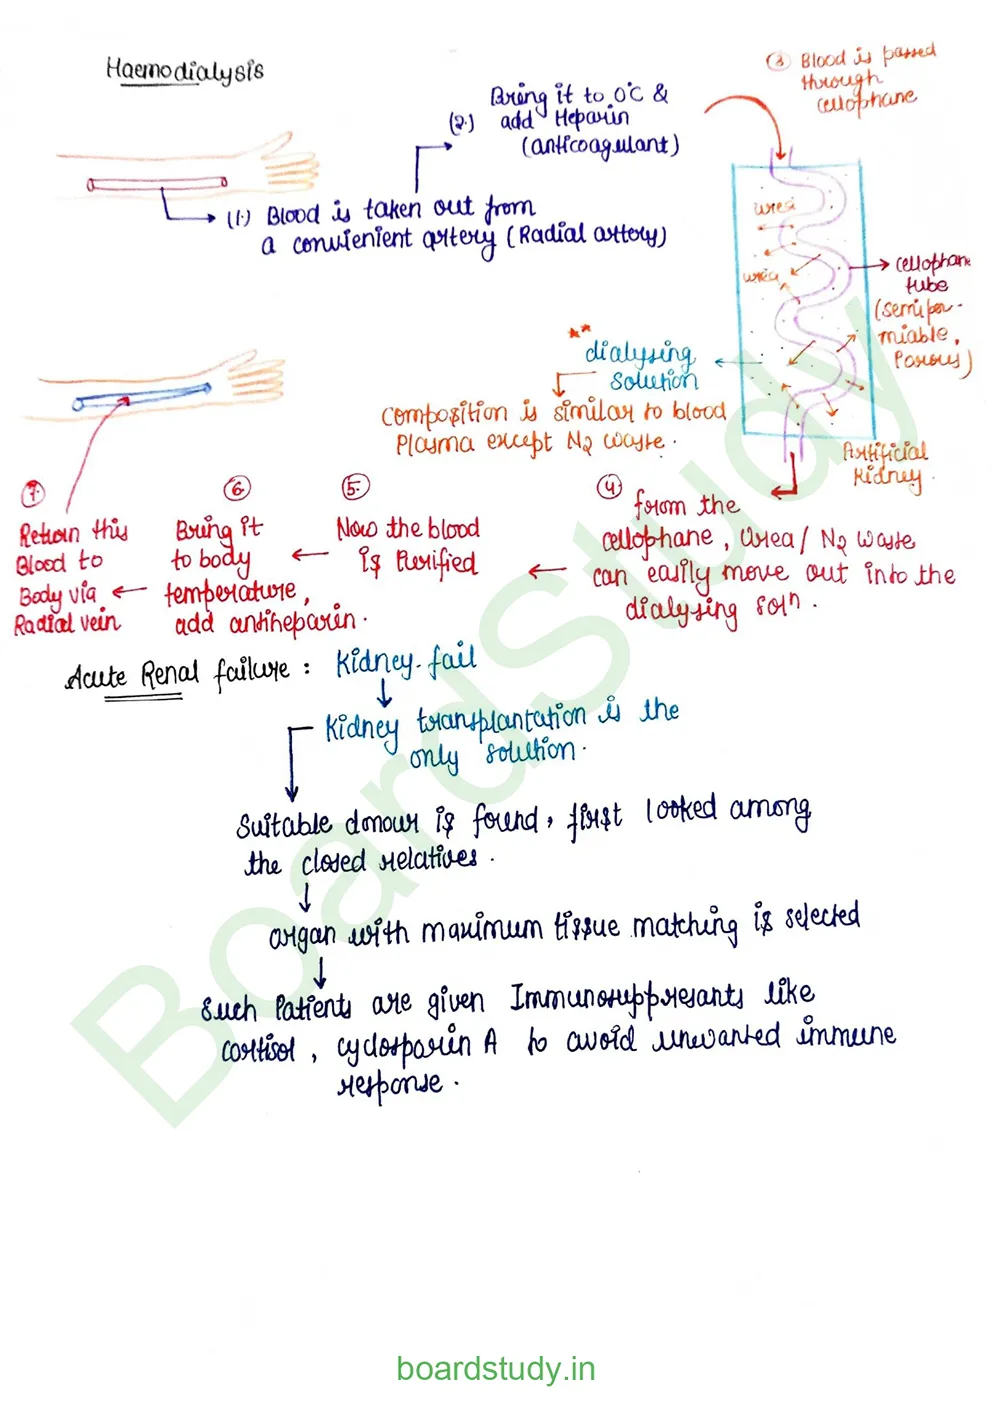 Haemodialysis
(3) Blood is passed
through
cellophane
Bring it to 0°C &
(2.) add Heparin
(anticoagulant)
(1.) Blood is taken out from
a convienient artery (Radial artery)
urea
urea
cellophane
tube
(semi per-
miable,
Porous)
** dialysing
solution
composition is similar to blood
Plasma except N2 waste.
Artificial
kidney.
(4) from the
cellophane, Urea/ N2 waste
can easily move out into the
dialysing solⁿ.
(5.) Now the blood
is Purified
(6.) Bring it
to body
temperature,
add antiheparin.
(7.) Return this
Blood to
Body via
Radial vein
Acute Renal failure : Kidney-fail
Kidney transplantation is the
only solution.
Suitable donour is found, first looked among
the closed relatives.
organ with maximum tissue matching is selected
Such Patients are given Immunosuppresants like
cortisol, cyclosparin A to avoid unwanted immune
response.
BoardStudy
boardstudy.in